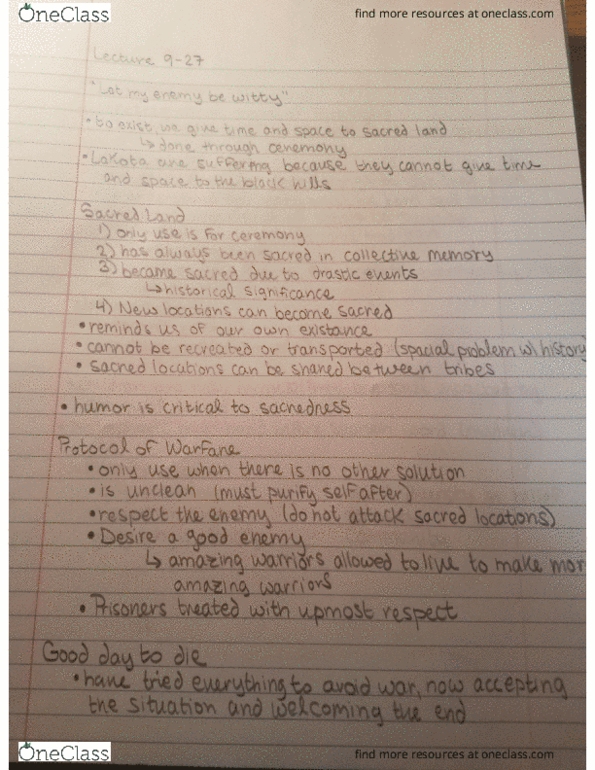 OneClass
find more resources at oneclass.com
Lecture 9-27
"Let my enemy be witty"
• to exist, we give time and space to sacred land
↳ done through ceremony
• Lakota are suffering because they cannot give time
and space to the black hills
Sacred Land
1) only use is for ceremony
2) has always been sacred in collective memory
3) became sacred due to drastic events
↳ historical significance
4) New locations can become sacred
• reminds us of our own existance
• cannot be recreated or transported (spacial problem w/ history
• sacred locations can be shared between tribes
• humor is critical to sacredness
Protocol of Warfare
• only use when there is no other solution
• is unclean (must purify self after)
• respect the enemy (do not attack sacred locations)
• Desire a good enemy
↳ amazing warriors allowed to live to make mor
amazing warriors
• Prisoners treated with upmost respect
Good day to die
• have tried everything to avoid war, now accepting
the situation and welcoming the end
OneClass
find more resources at oneclass.com